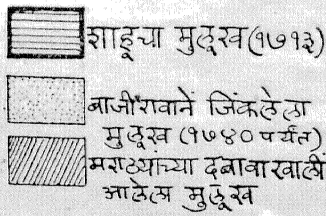 शाहूचा मुलूख (१७१३)
बाजीरावानें जिंकलेला
मुलूख (१७४० पर्यंत)
मराठ्यांच्या दबावाखालीं
आलेला मुलूख